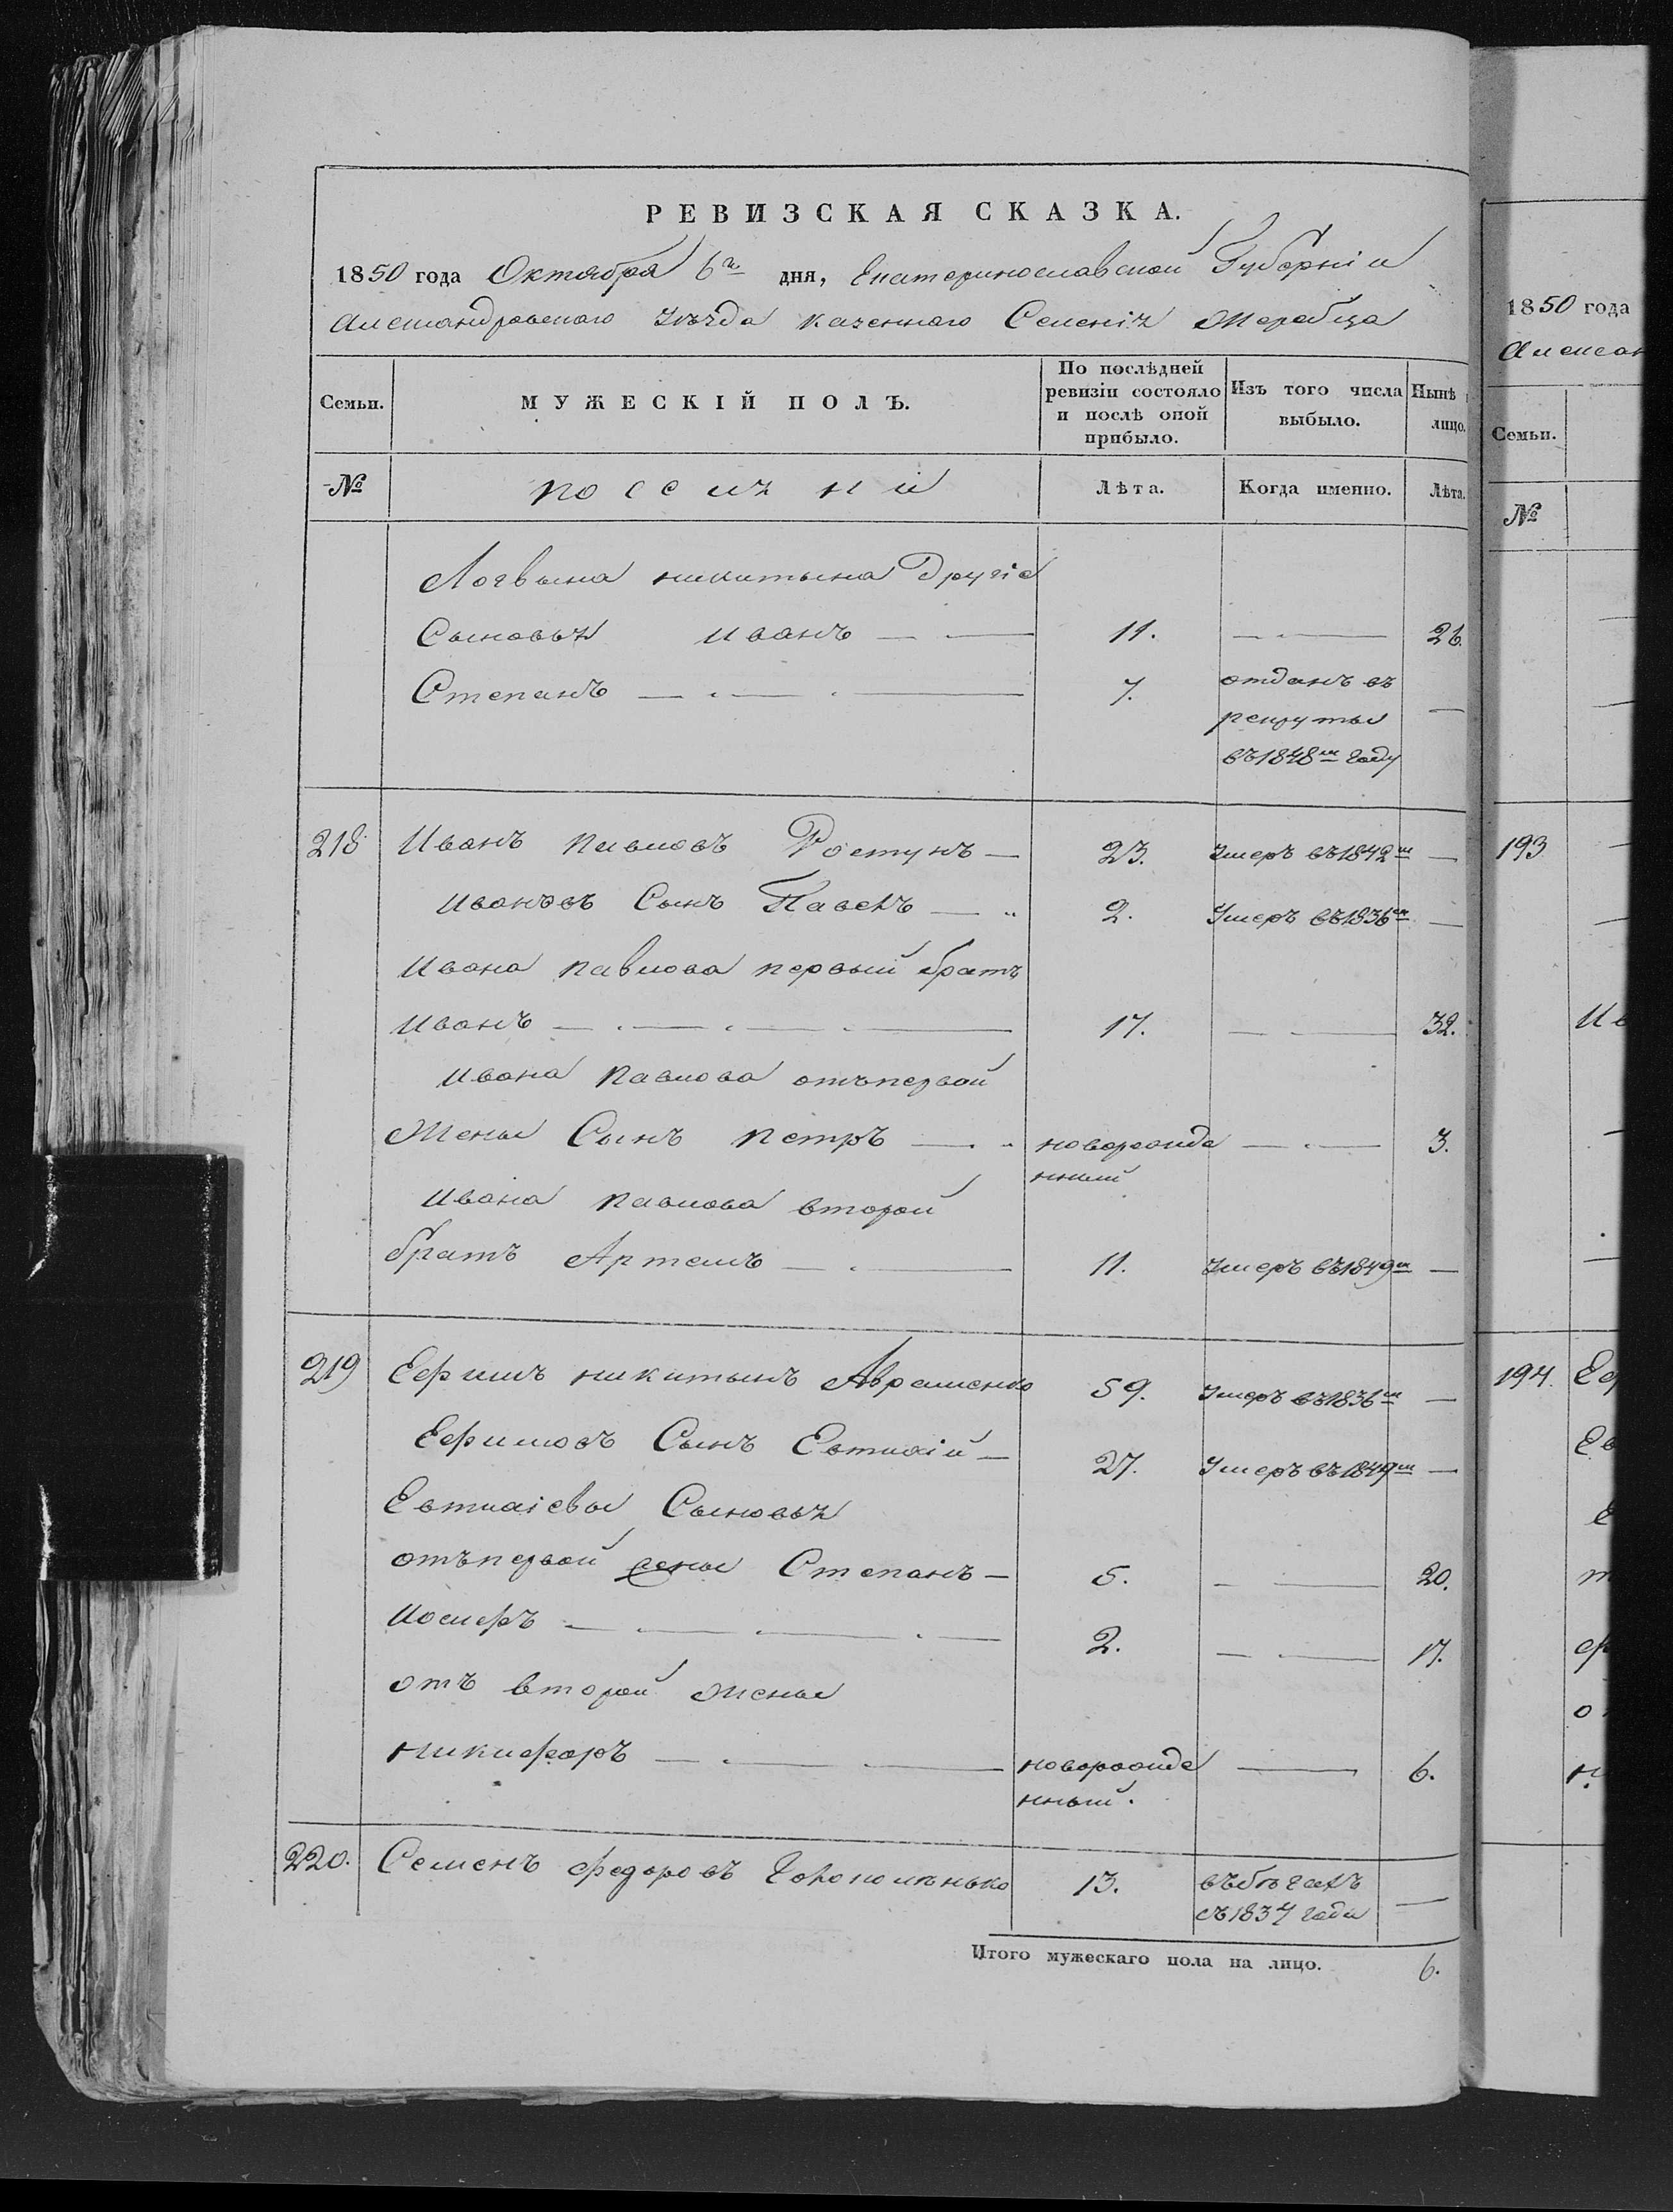 РЕВИЗСКАЯ СКАЗКА.
1850 года Октября 6го дня, Екатеринославской Губерніи
Александровского Уѣзда казенного Селенія Жеребца
Семьи.
МУЖЕСКІЙ ПОЛЪ.
По послѣдней ревизіи состояло и послѣ оной прибыло.
Изъ того числа выбыло.
Нынѣ
лицо.
№
россіяни
Лѣта.
Когда именно.
Лѣта.
Логвына никитына Другіе
Сыновья иванъ — 11. — 26.
Степанъ — 7. отданъ въ рекруты въ 1848м году —
218 Иванъ павловъ Ростунъ — 23. Умеръ въ 1842м —
ивановъ Сынъ Павелъ — 2. Умеръ въ 1836м —
ивана павлова первый братъ
иванъ — 17. — 32.
ивана павлова отъ первой
Жены Сынъ петръ — новорожде нный — 3.
ивана павлова второй
братъ Артемъ — 11. Умеръ въ 1849м —
219 Ефимъ никитынъ Авраменко 59. Умеръ въ 1836м —
Ефимовъ Сынъ Евтихій — 27. Умеръ въ 1849м —
Евтихіевы Сыновья
отъ первой жены Степанъ — 5. — 20.
иосифъ — 2. — 17.
отъ второй жены
никифоръ — новорожде нный. — 6.
220. Семенъ федоровъ 13. въ бѣгахъ съ 1837 года —
Итого мужескаго пола на лицо. 6.
1850 года
Семьи.
№
193
194.